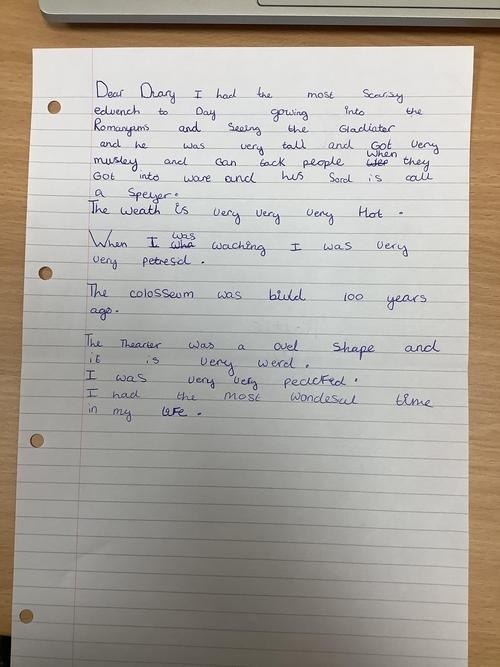 Dear Diary I had the most Scarisy
edvench to Day gowing into the
Romanyums and Seeing the Gladiater
and he was very tall and Got very
musley and Can tack people when they
Got into ware and his Sord is call
a Speyer.
The weath is very very very Hot.
When I was waching I was very
very petresd.
The colosseum was biuld 100 years
ago.
The Thearter was a ovel Shape and
it is very werd.
I was very very pedcted.
I had the most wondesul time
in my life.